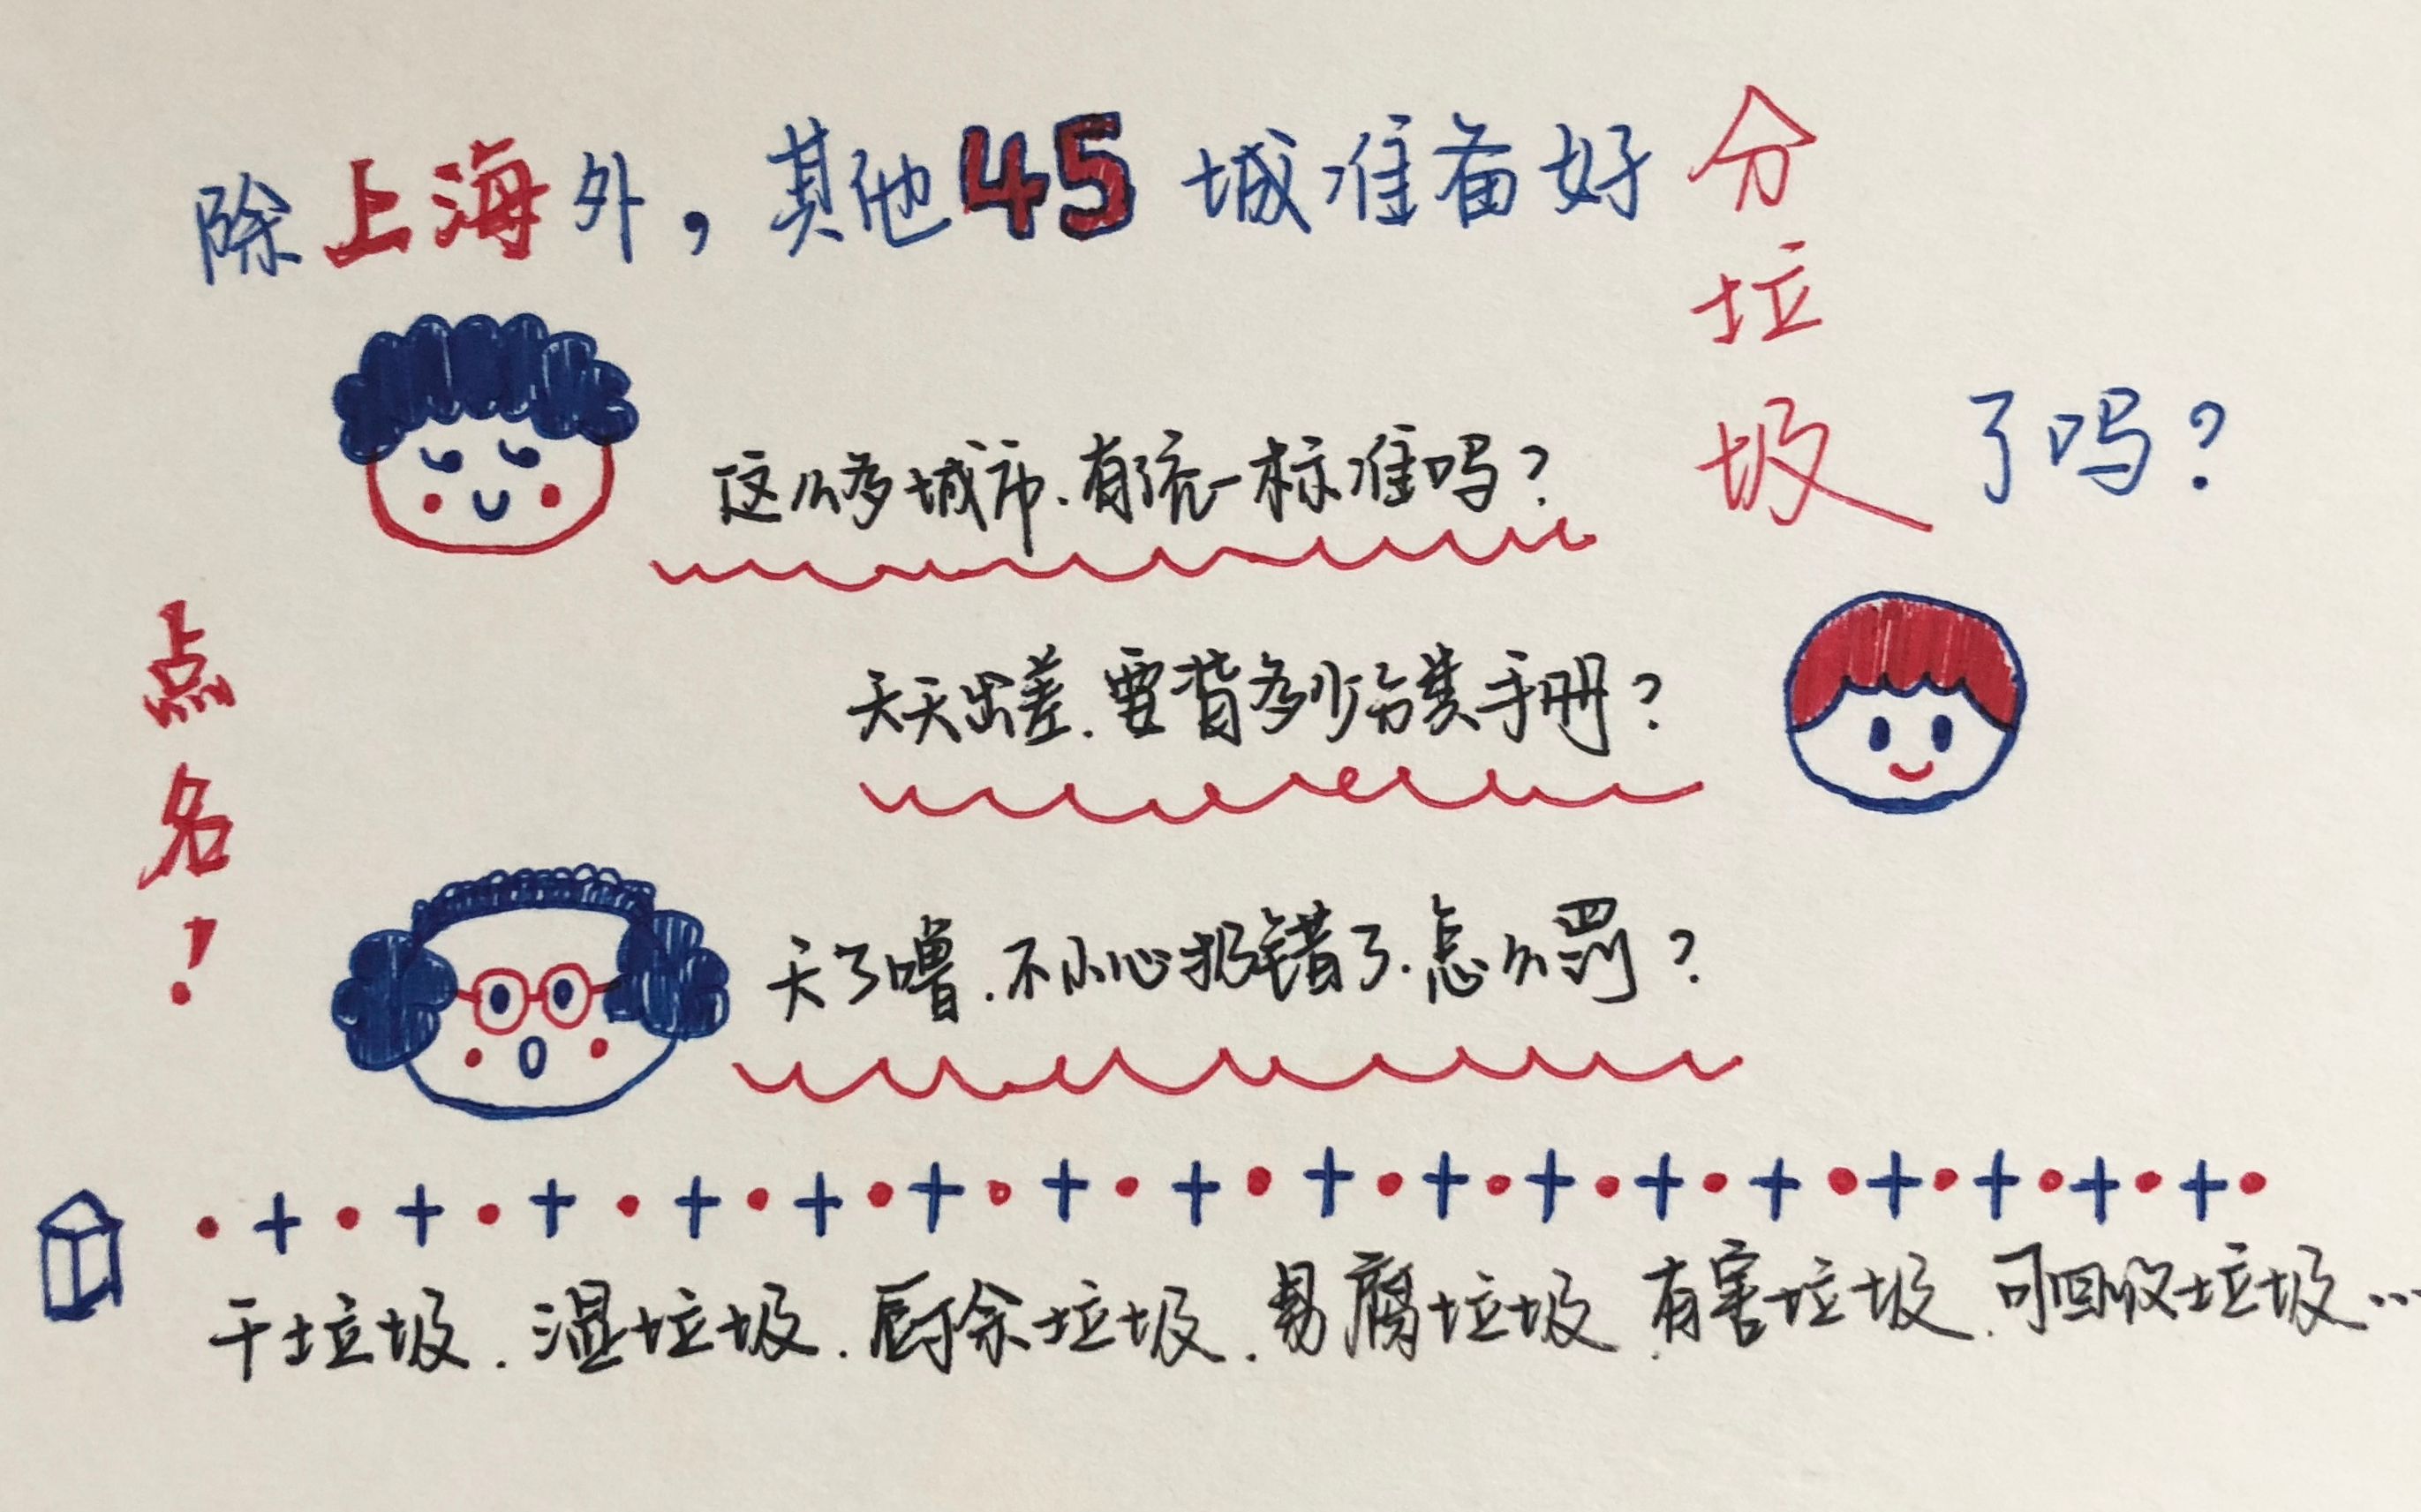 除上海外，其他45城准备好分垃圾了吗？
这么多城市、有统一标准吗？
点名！
天天出差、要背多少分类手册？
天了噜、不小心扔错了、怎么罚？
干垃圾、湿垃圾、厨余垃圾、易腐垃圾、有害垃圾、可回收垃圾…